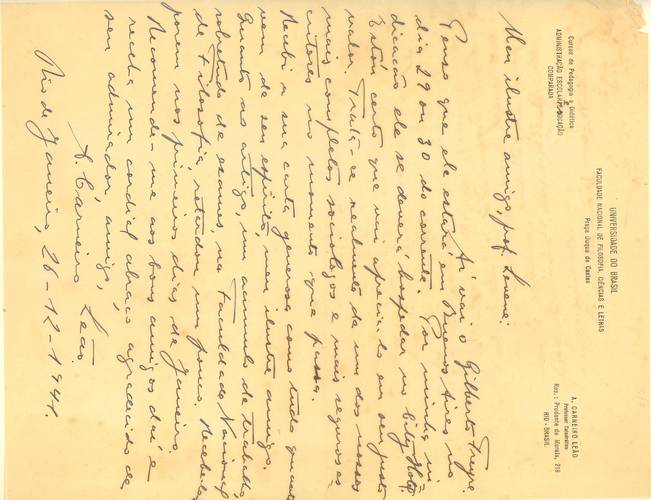 UNIVERSIDADE DO BRASIL
FACULDADE NACIONAL DE FILOSOFIA, CIENCIAS E LETRAS
Praça Duque de Caxias
Cursos de Pedagogia e Didática
ADMINISTRAÇÃO ESCOLAR E EDUCAÇÃO
COMPARADA
A. CARNEIRO LEÃO
Professor Catedrático
Res.: Prudente de Morais, 218
RIO - BRASIL
Meu ilustre amigo, prof.
Aí vai o Gilberto Freyre.
Penso que ele estará em Buenos Aires, no
dia 29 ou 30 do corrente. Por minha in-
dicação ele se deverá hospedar no City Hotel.
Estou certo que vai apreciá-lo em seu justo
valor. Trata-se realmente de um dos nossos
mais completos sociologos e mais vigorosos es-
critores no momento que passa.
Recebi a sua carta generosa como tudo quanto
vem de seu espírito, meu ilustre amigo.
Quanto ao artigo, um acumulo de trabalho,
sobretudo de exames na Faculdade Nacional
de Filosofia retardou um pouco. Recebe-lo-á
porem nos primeiros dias de Janeiro.
Recomende-me aos bons amigos daí e
receba um cordial abraço agradecido de
seu admirador, amigo,
A. Carneiro Leão
Rio de Janeiro, 26-12-1941.